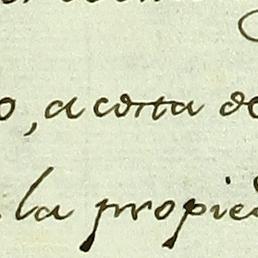 o, a costa de
la propied